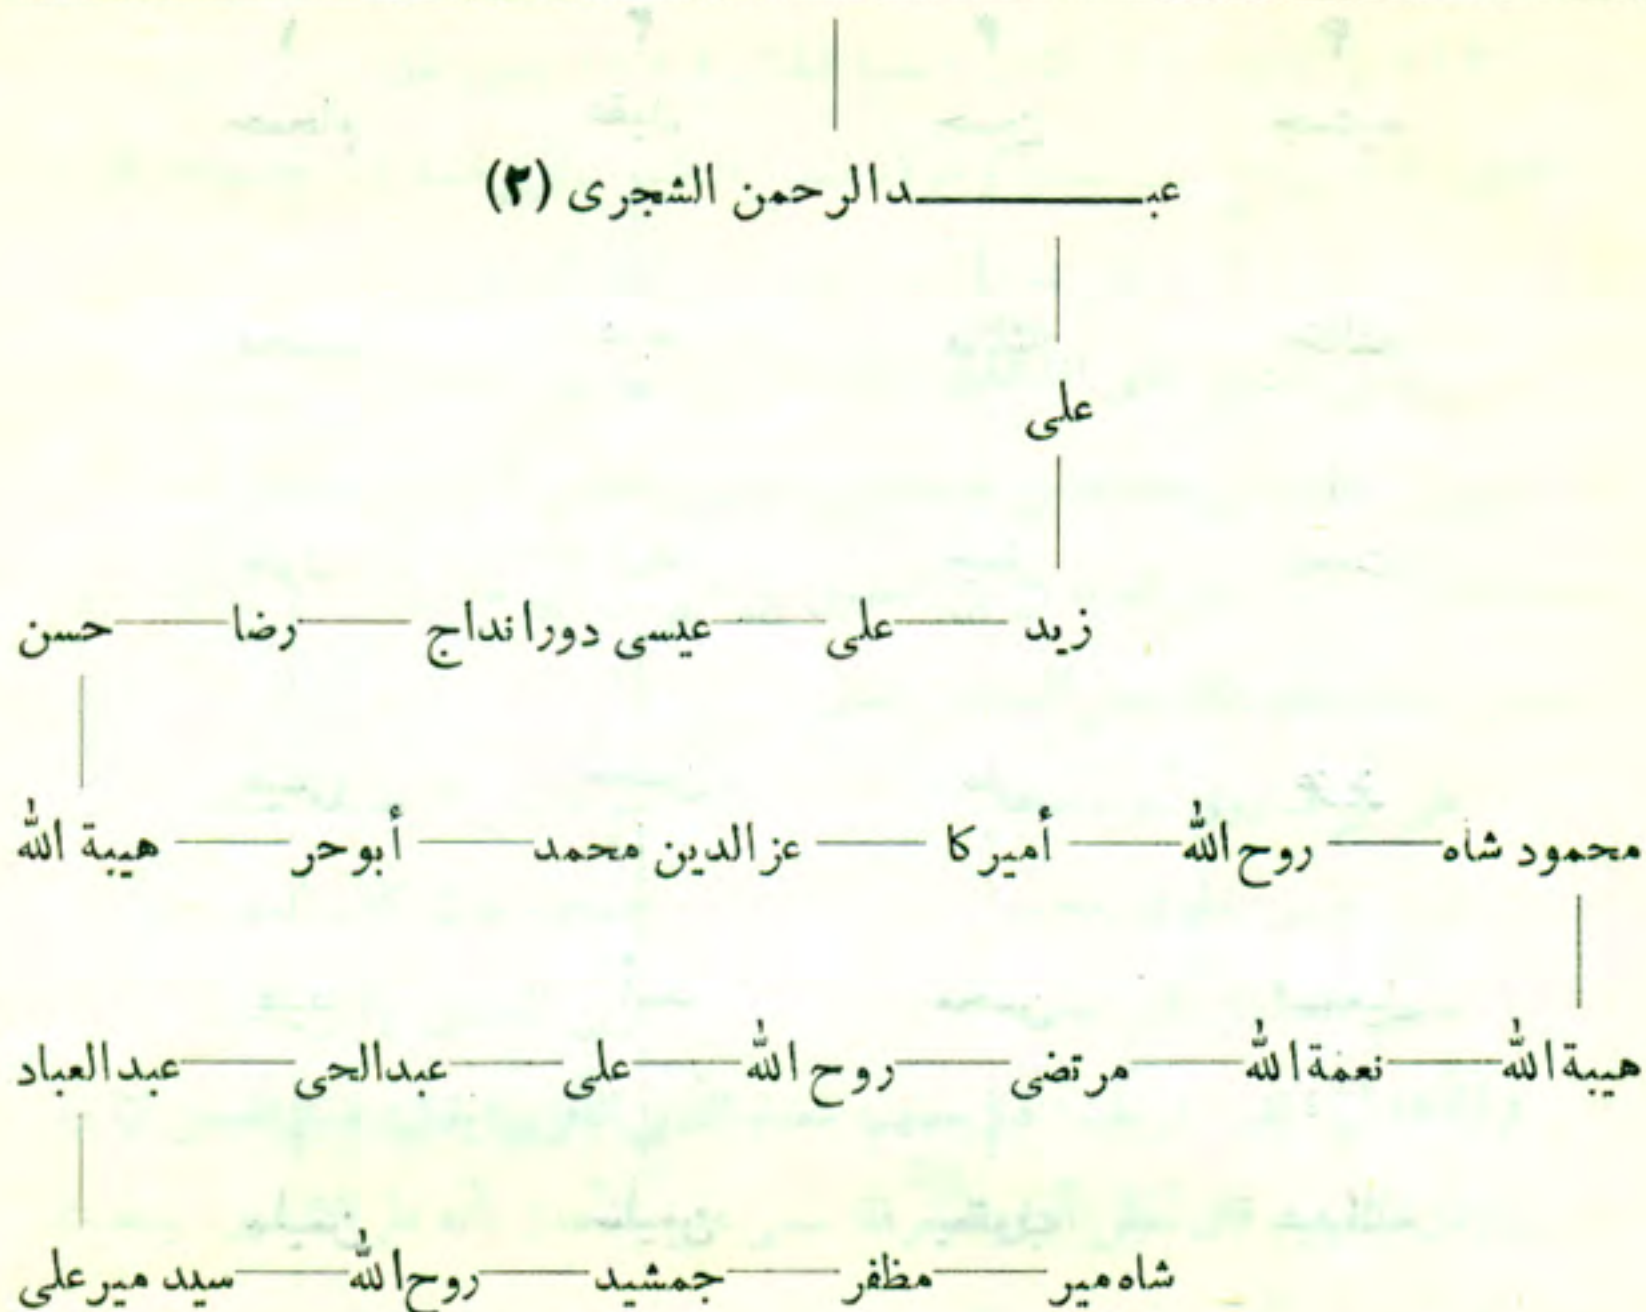 عبدالرحمن الشجری (۳)
علی
زید علی عیسی دورانداج رضا حسن
محمود شاه روح الله أمیرکا عزالدین محمد أبوحر هیبة الله
هیبة الله نعمة الله مرتضی روح الله علی عبدالحی عبدالعباد
شاه میر مظفر جمشید روح الله سید میرعلی